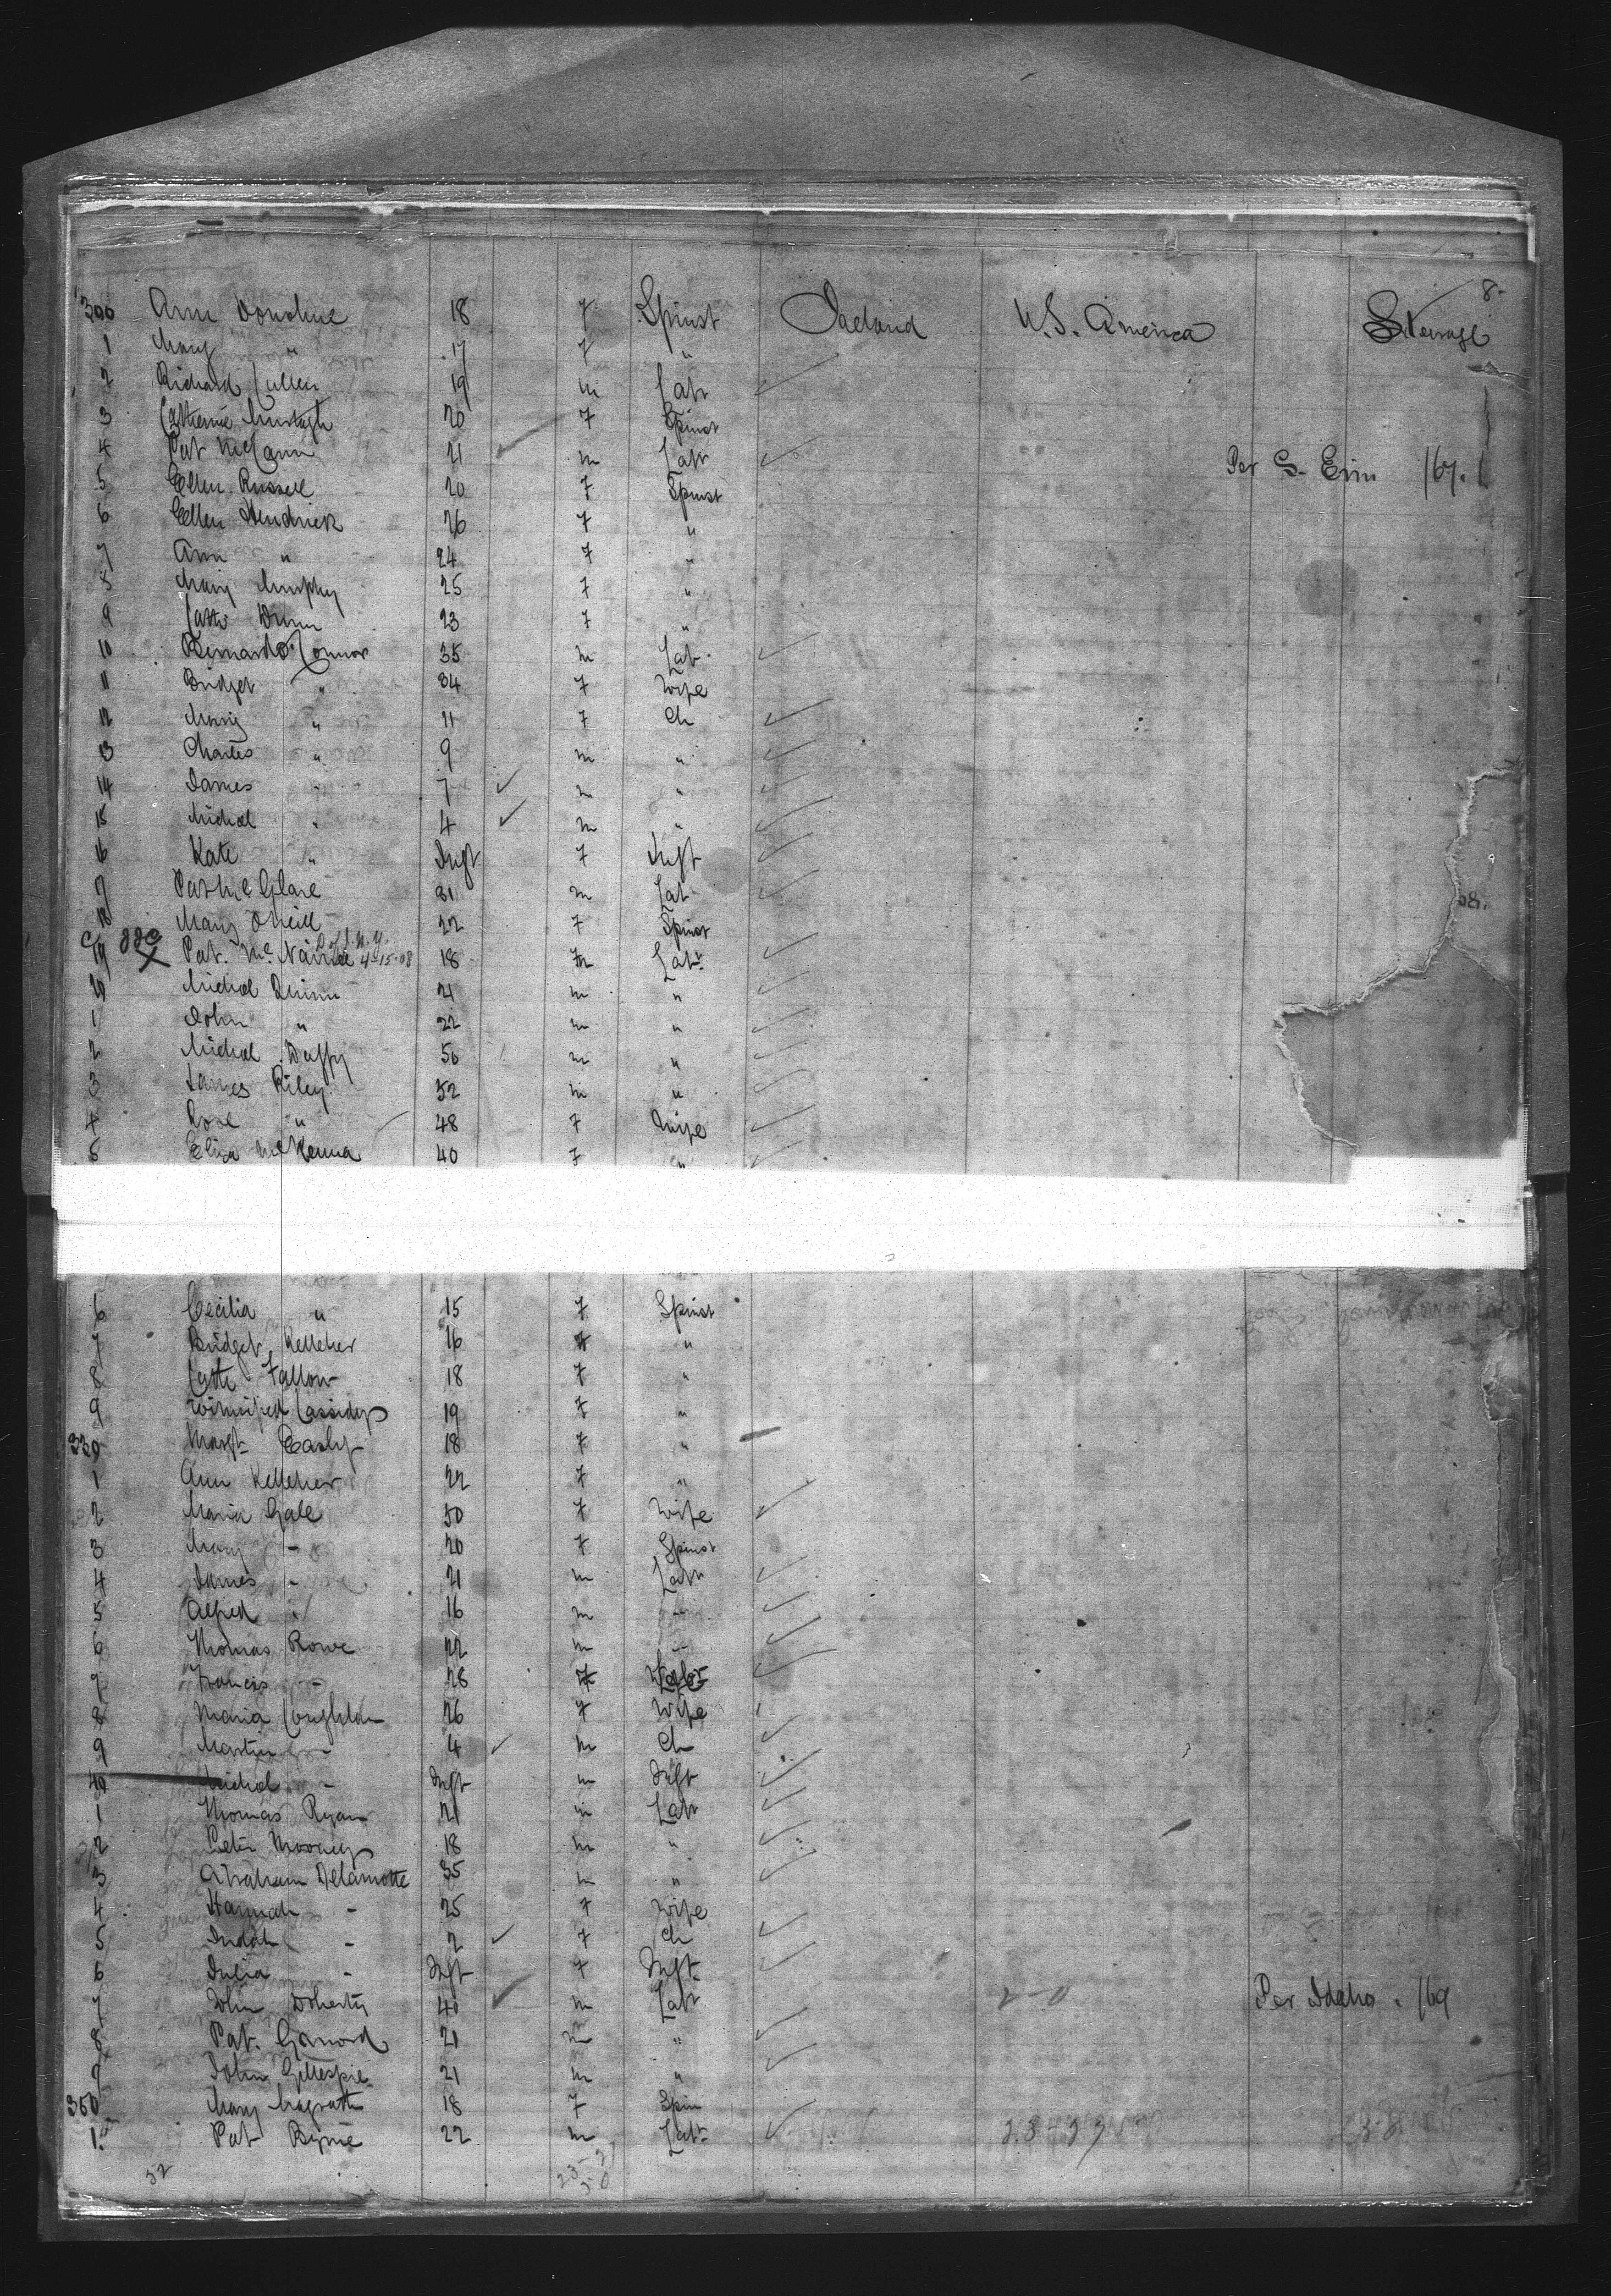 8-
300 Ann Donohue 18 f Spinst Ireland U.S. America Steerage
1 Mary " 17 f "
2 Richard Cullen 19 m Labr
3 Catherine Murtagh 20 f Spinst
4 Pat McCann 21 m Labr Per S- Erin /67.
5 Ellen Russell 20 f Spinst
6 Ellen Hendrick 26 f "
7 Ann " 24 f "
8 Mary Murphy 25 f "
9 Cath Dunn 23 f "
10 Bernard O'Connor 35 m Lab
11 Bridget " 34 f Wife
12 Mary " 11 f Ch
13 Charles " 9 m "
14 James " 7 m "
15 Michal " 4 m "
16 Kate " Inft f Inft
17 Pat 31 m Lab
18 Mary O'Neill 22 f Spinst
19 X Pat. Mc 4-15-08 18 m Labr
20 Michal Quinn 21 m "
1 John " 22 m "
2 Michal Duffy 50 m "
3 James Riley 52 m "
4 Rose " 48 f Wife
5 Eliza McKenna 40 f "
6 Cecilia " 15 f Spinst
7 Bridget Kelleher 16 f "
8 Cath Fallon 18 f "
9 Winnifred Cassidy 19 f "
330 Margt 18 f "
1 Ann Kelleher 22 f "
2 Maria Gale 50 f Wife
3 Mary - 20 f Spinst
4 James - 21 m Labr
5 Alfred " 16 m "
6 Thomas Rowe 22 m "
7 Francis - 28
8 Maria Coughlan 26 f Wife
9 Martin - 4 m Ch
40 Michal - Inft m Inft
1 Thomas Ryan 21 m Labr
2 Peter Mooney 18 m "
3 Abraham Delamotte 35 m "
4 Hannah - 25 f Wife
5 Judah - 2 f Ch
6 Julia - Inft f Inft
7 John Doherty 40 m Labr 2-0 Per Idaho. /69
8 Pat. 21 m "
9 John Gillespie 21 m "
350 Mary Magrath 18 f Spin
1. Pat Byrne 22 m Labr
52